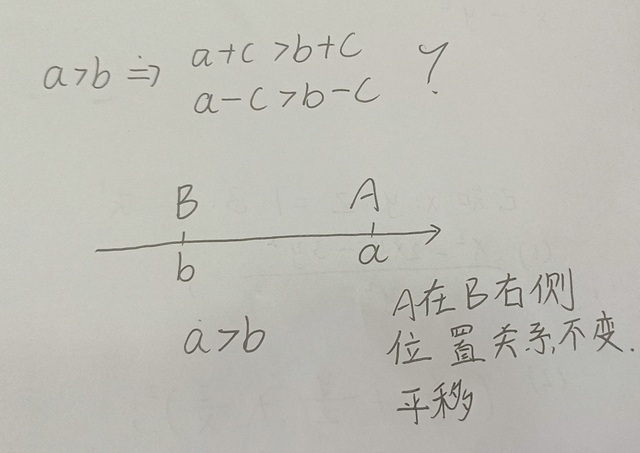 a>b ⇒ a+c>b+c ?
a-c>b-c
B A
b a
a>b
A在B右侧
位置关系不变.
平移